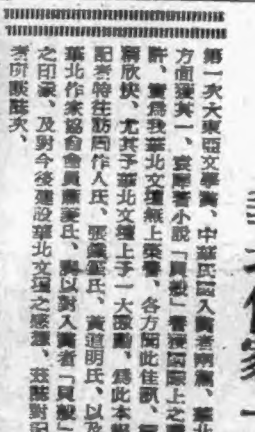 第一次大東亞文學賞、中華民國入賞者兩篇、華北
方面獲其一、袁犀著小説「貝殼」譽獲國際上之
許、實爲我華北文壇無上榮譽、各方聞此佳訊、
稱欣快、尤其予華北文壇上予一大激動、爲此本報
記者特往訪周作人氏、張鐵笙氏、黃道明氏、以及
華北作家協會會員蕭菱氏、以對入賞者「貝殼」
之印象、及對今後建設華北文壇之感想、茲誌對記
者所談誌次、